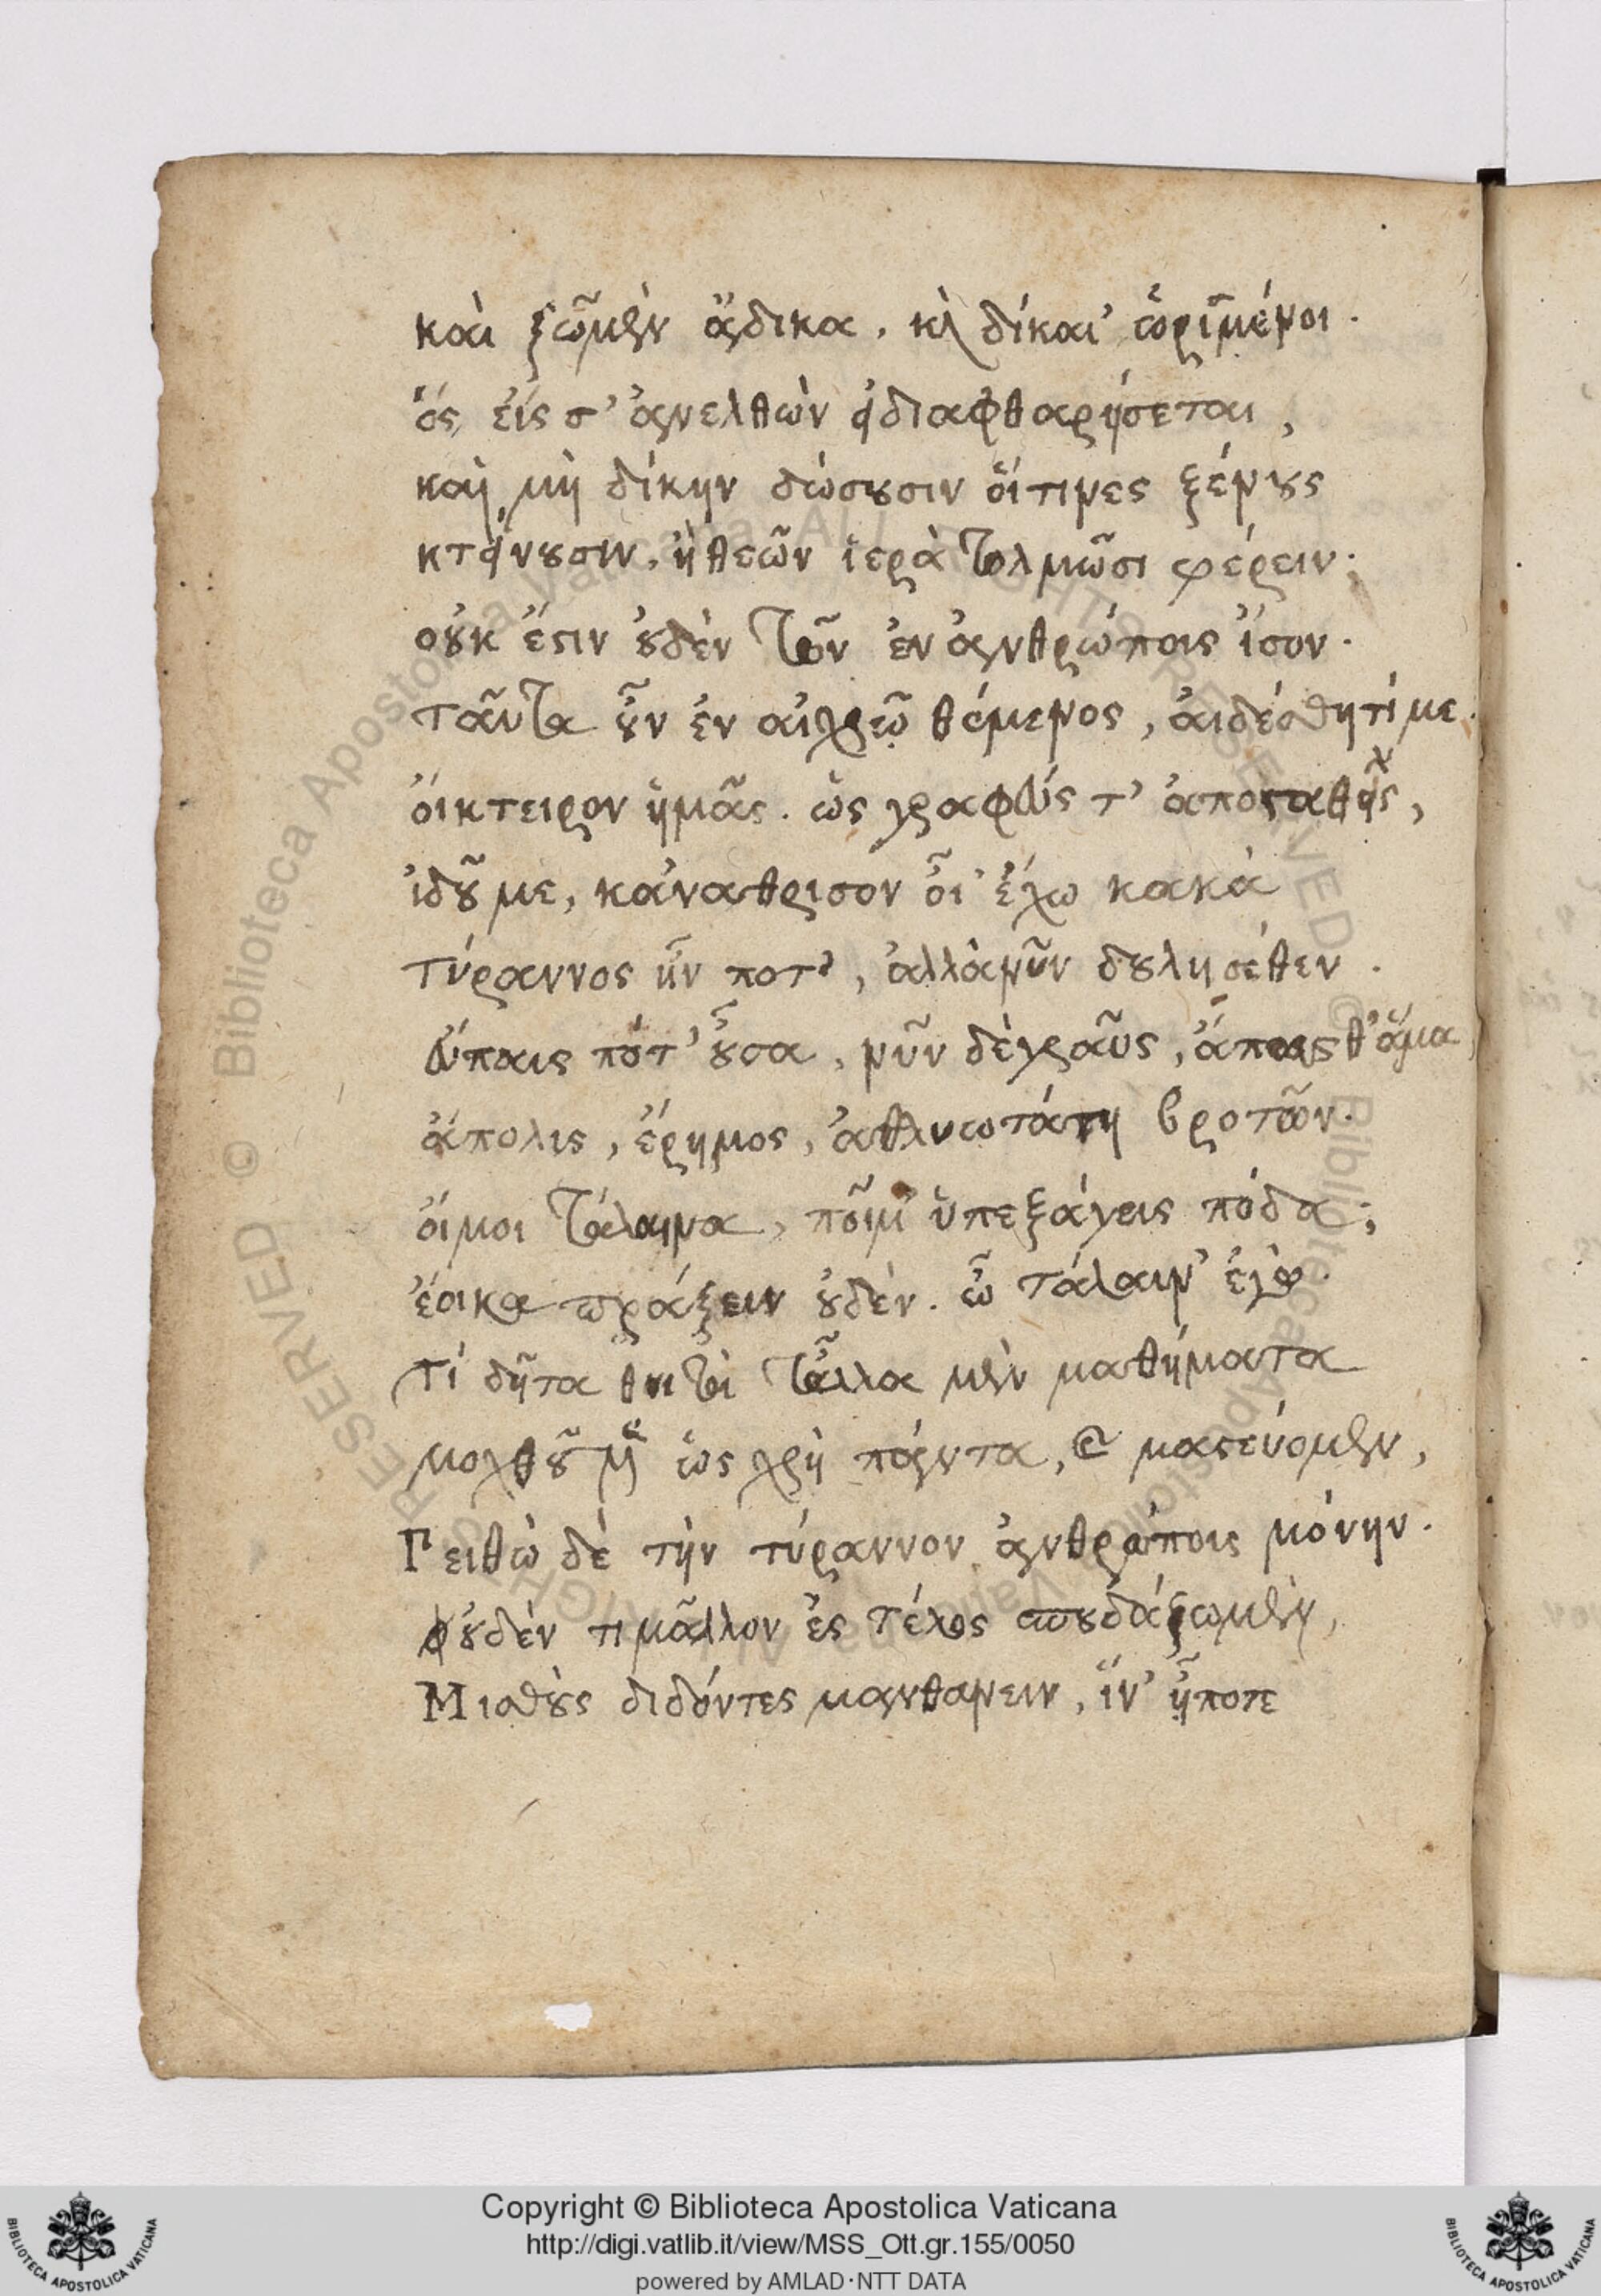 καὶ ζῶμεν ἄδικα, κ̀ δίκαι' ὡρισμένοι.
ὅς εἰς σ' ἀνελθὼν εἰ διαφθαρήσεται,
καὶ μὴ δίκην δώσουσιν οἵτινες ξένους
κτείνουσιν, ἢ θεῶν ἱερὰ τολμῶσι φέρειν;
οὐκ ἔστιν οὐδὲν τῶν ἐν ἀνθρώποις ἴσον.
ταῦτα οὖν ἐν αἰσχρῷ θέμενος, αἰδέσθητί με.
οἴκτειρον ἡμᾶς. ὡς γραφεύς τ' ἀποσταθείς,
ἰδοῦ με, κἀνάθρησον οἷ' ἔχω κακά
τύραννος ἦν ποτ', ἀλλὰ νῦν δούλη σέθεν.
εὔπαις πότ' οὖσα, νῦν δὲ γραῦς, ἄπαις θ' ἅμα,
ἄπολις, ἔρημος, ἀθλιωτάτη βροτῶν.
οἴμοι τάλαινα, ποῖ μ' ὑπεξάγεις πόδα;
ἔοικα πράξειν οὐδέν. ὦ τάλαιν' ἐγώ.
τί δῆτα θνητοὶ τἄλλα μὲν μαθήματα
μοχθοῦμεν ὡς χρὴ πάντα, καὶ μαστεύομεν,
Πειθὼ δὲ τὴν τύραννον ἀνθρώποις μόνην.
οὐδέν τι μᾶλλον ἐς τέλος σπουδάζωμεν,
Μισθοὺς διδόντες μανθάνειν, ἵν' ᾖ ποτε
Copyright © Biblioteca Apostolica Vaticana
http://digi.vatlib.it/view/MSS_Ott.gr.155/0050
powered by AMLAD·NTT DATA